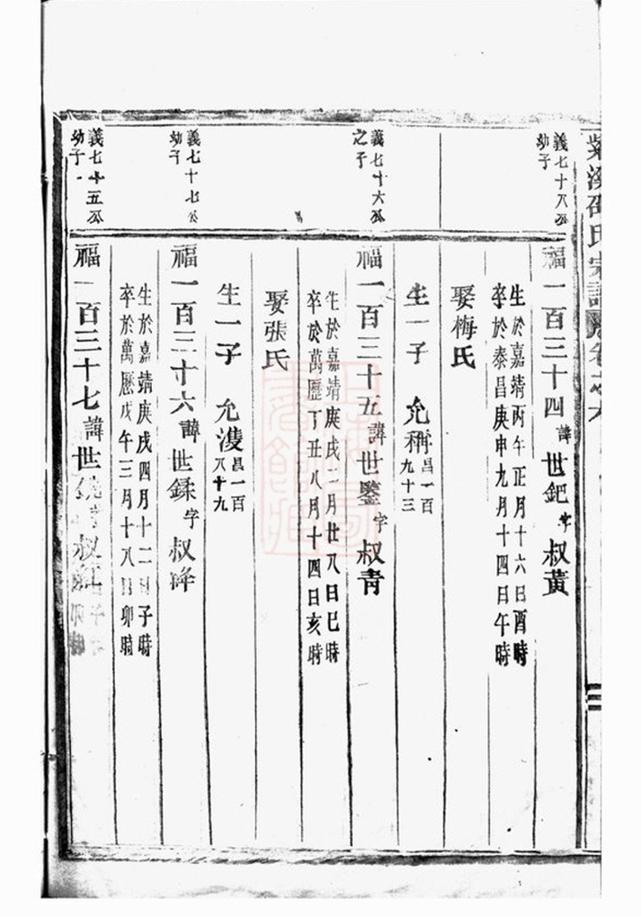 紫溪邵氏宗譜 卷之六
三
義七十八公
幼子
福一百三十四 諱 世鈀 字 叔黃
生於嘉靖丙午正月十六日酉時
卒於泰昌庚申九月十四日午時
娶梅氏
生一子 允稱 昌一百九十三
義七十六公
之子
福一百三十五 諱 世鑒 字 叔青
生於嘉靖庚戌二月廿八日巳時
卒於萬曆丁丑八月十四日亥時
娶張氏
生一子 允濩 昌一百八十九
義七十七公
幼子
福一百三十六 諱 世鍒 字 叔絳
生於嘉靖庚戌四月十二日子時
卒於萬歷戊午三月十八日卯時
義七十五公
幼子
福一百三十七 諱 世 叔紅